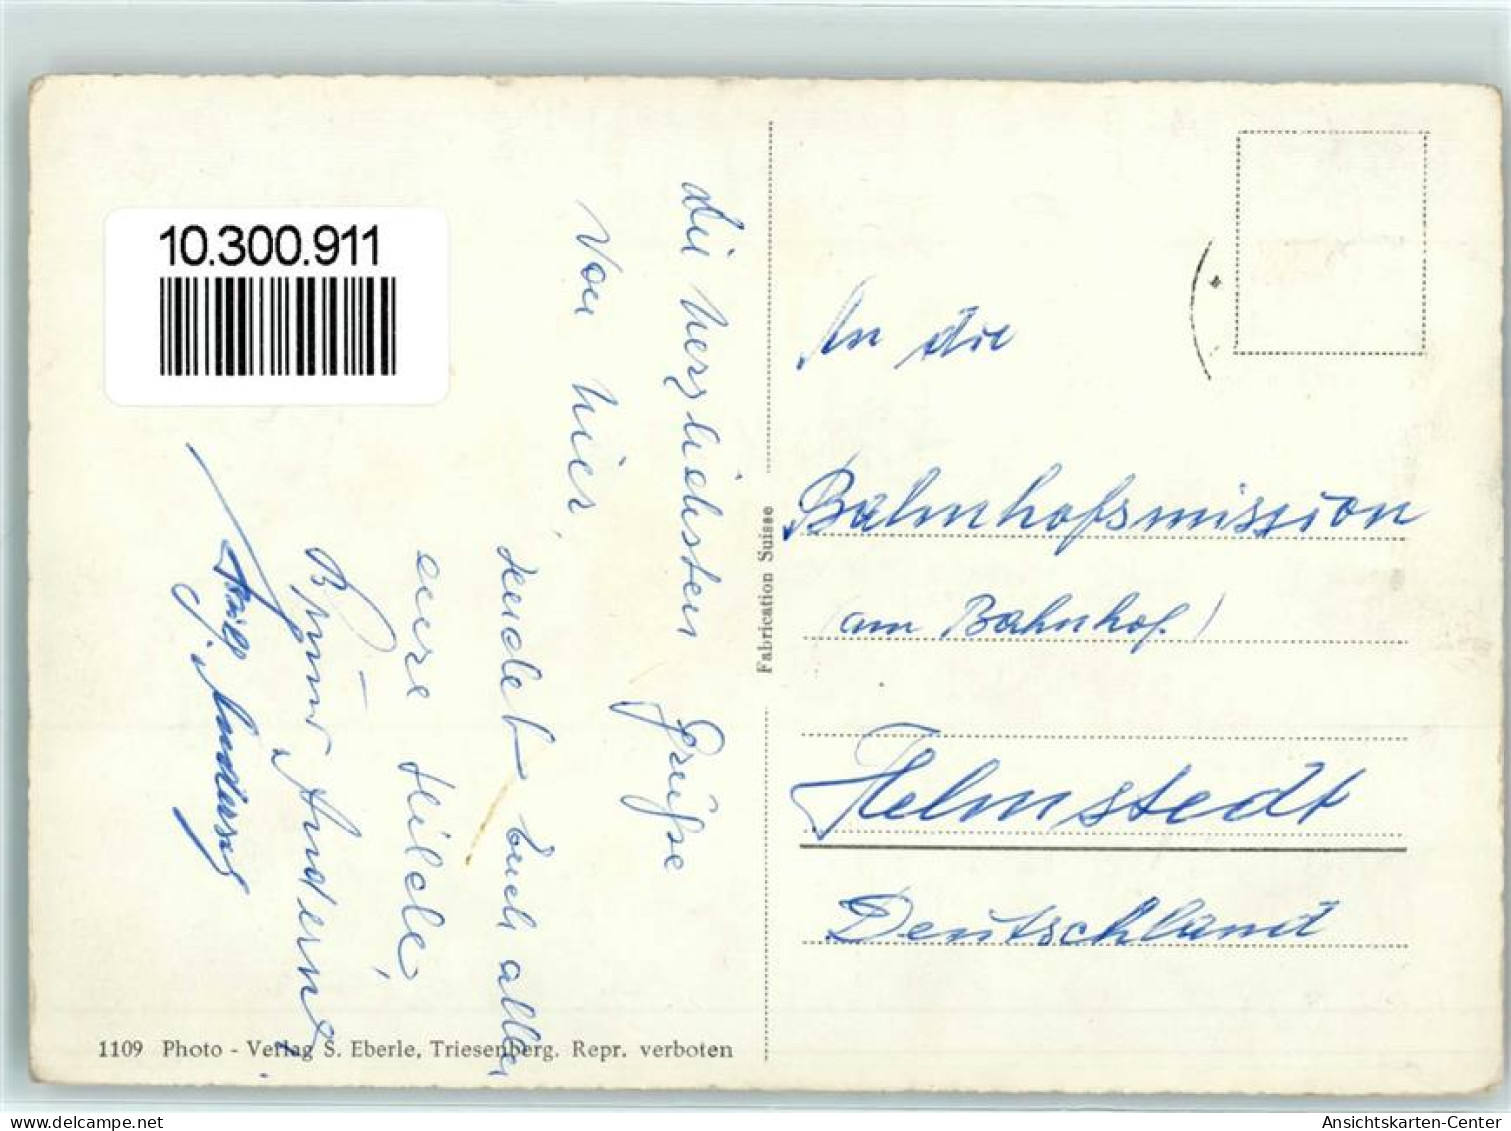 10.300.911
die herzlichsten Grüße
von hier,
sendet Euch allen
eure Hilde,
1109 Photo - Verlag S. Eberle, Triesenberg. Repr. verboten
Fabrication Suisse
An die
Bahnhofsmission
(am Bahnhof.)
Helmstedt
Deutschland
delcampe.net
Ansichtskarten-Center